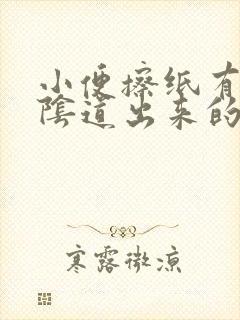 小便擦纸有
陰道出来的
寒露微凉